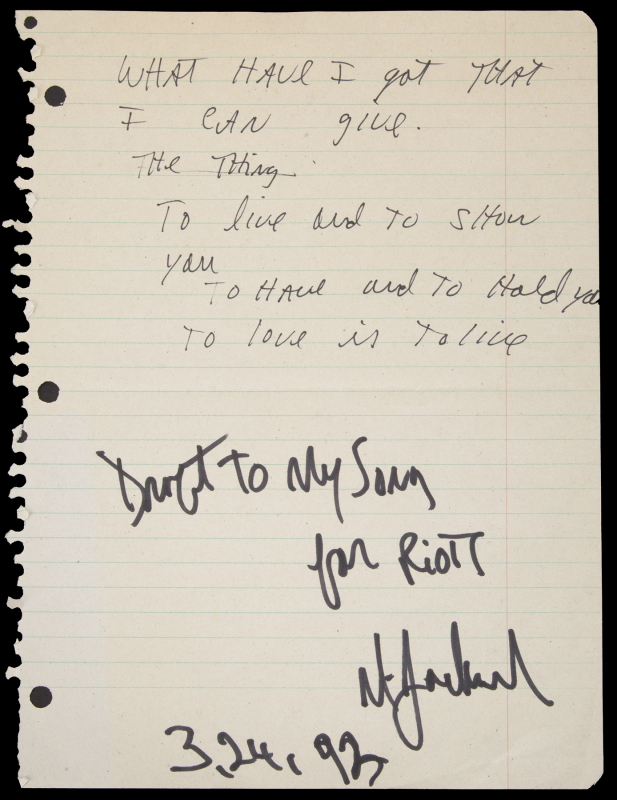 WHAT HAVE I got THAT
I CAN give.
THE THing
To live and To SHOW
you
TO HAVE and TO Hold you
TO love is To live
Draft to My Song
for RioTT
3,24,92